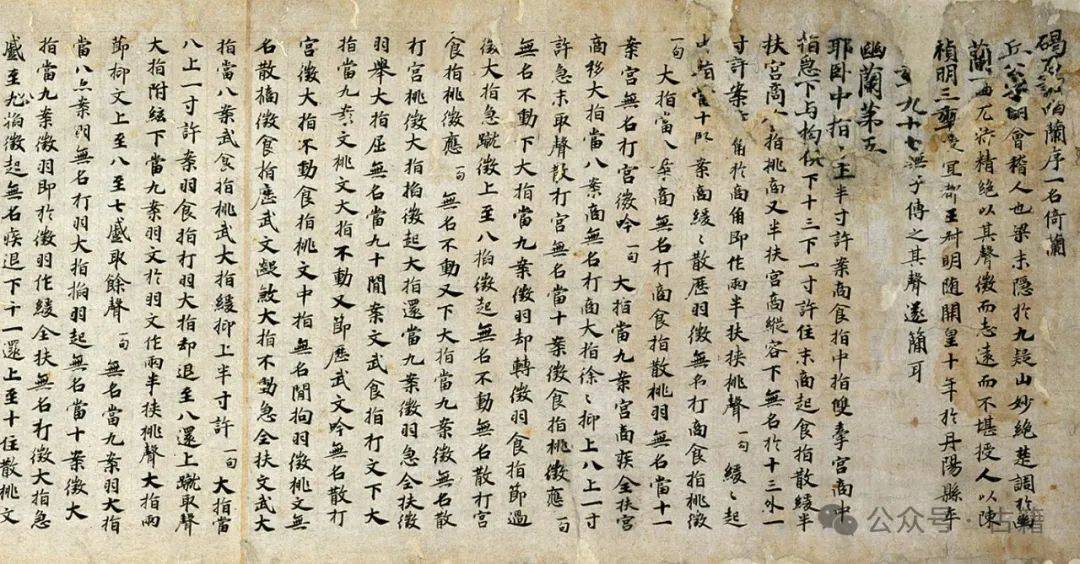 碣石調幽蘭序一名倚蘭
丘公字明會稽人也梁末隱於九疑山妙絕楚調於幽
蘭一曲尤特精絕以其聲微而志遠而不堪授人以陳
禎明三年授宜都王叔明隨開皇十年於丹陽縣卒
年九十七無子傳之其聲遂簡耳
幽蘭第五
耶臥中指上半寸許案商食指中指雙牽宮商中
指急下与拘俱下十三下一寸許住末商起食指散緩半
扶宮商食指挑商又半扶宮商縱容下無名於十三外一
寸許案商角於商角即作兩半扶挾挑聲一句 緩緩起
無名 案商緩緩散歷羽徵無名打商食指挑徵
一句 大指當八案商無名打商食指散挑羽無名當十一
案宮無名打宮徵吟一句 大指當九案宮商疾全扶宮
商移大指當八案商無名打商大指徐徐抑上八上一寸
許急末取聲散打宮無名當十案徵食指挑徵應一句
無名不動下大指當九案徵羽却轉徵羽食指節過
徵大指急蹴徵上至八掐徵起無名不動無名散打宮
食指挑徵應一句 無名不動又下大指當九案徵無名散
打宮挑徵大指掐起大指還當九案徵羽急全扶徵
羽舉大指屈無名當九十間案文武食指打文下大
指當九案文挑文大指不動又節歷武文吟無名散打
宮徵大指不動食指挑文中指無名間拘羽徵挑文無
名散摘徵食指歷武文 大指不動急全扶文武大
指當八案武食指挑武大指緩抑上半寸許一句 大指當
八上一寸許案羽食指打羽大指却退至八還上蹴取聲
大指附絃下當九案羽文於羽文作兩半挾挑聲大指兩
節抑文上至八至七蹙取餘聲一句 無名當九案羽大指
當八案羽無名打羽大指掐羽起無名當十案徵大
指當九案徵羽即於徵羽作緩全扶無名打徵大指急
蹙至八掐徵起無名疾退下十一還上至十住散挑文
公众号·古籍